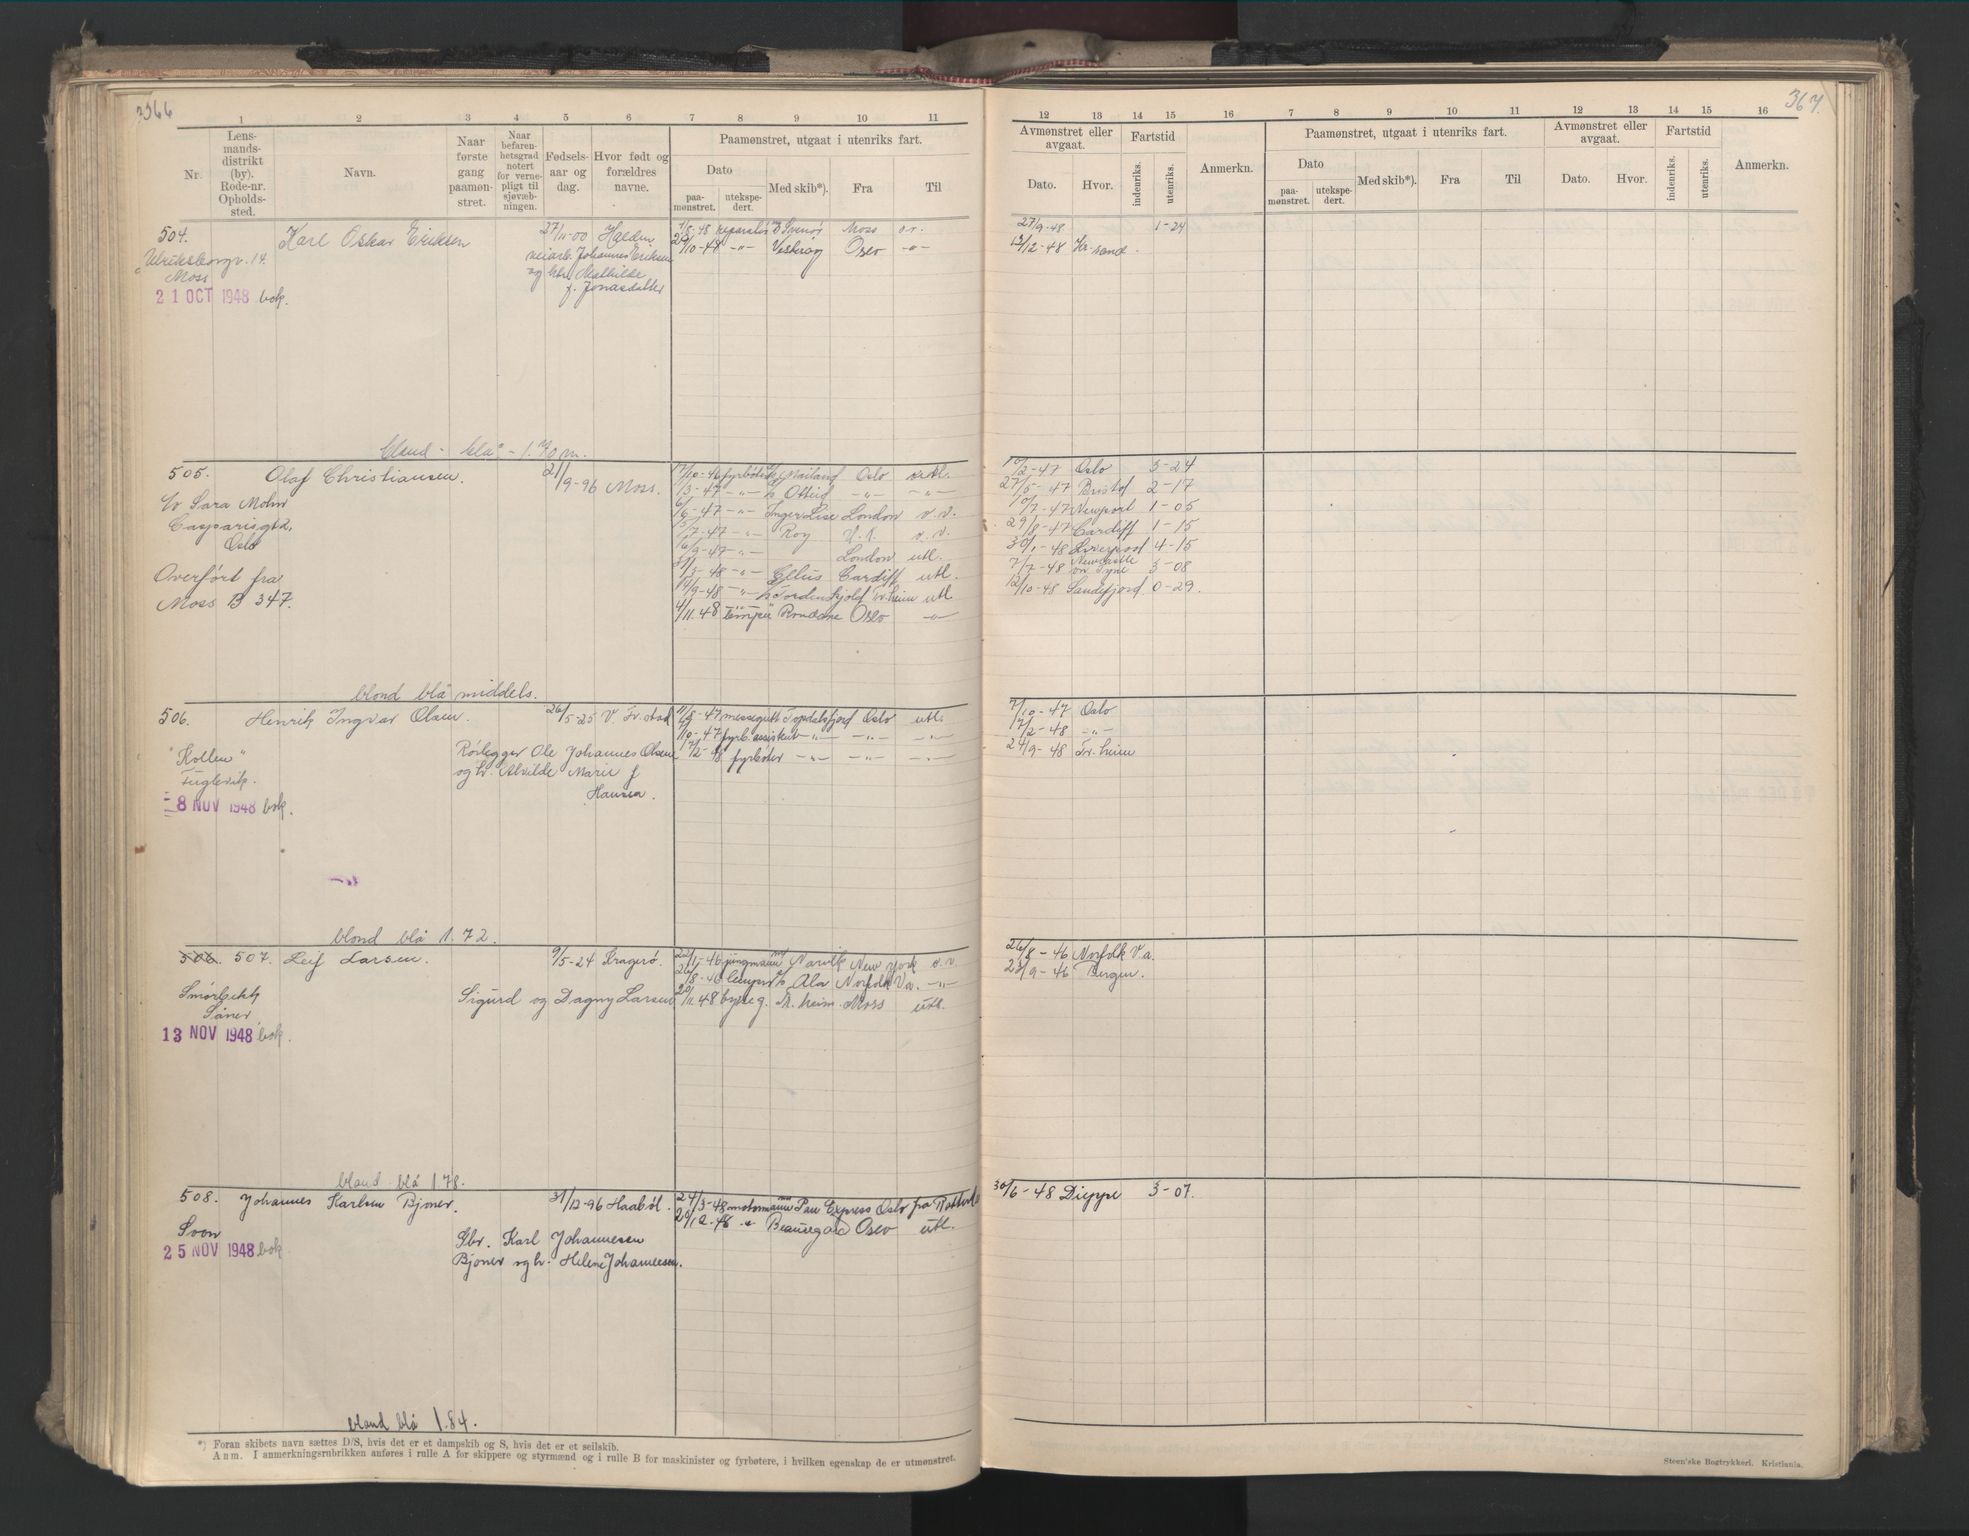 366
1 2 3 4 5 6 7 8 9 10 11
Nr.
Lens-
mands-
distrikt
(by).
Rode-nr.
Opholds-
sted.
Navn.
Naar
første
gang
paamøn-
stret.
Naar
befaren-
hetsgrad
notert
for verne-
pligt til
sjøvæb-
ningen.
Fødsels-
aar og
dag.
Hvor født og
forældres
navne.
Paamønstret, utgaat i utenriks fart.
Dato
paa-
mønstret.
utekspe-
dert.
Med skib*).
Fra
Til
504. Karl Oskar Eriksen 27/11-00 Halden
Ulriksborgv. 14.
Moss
21 OCT 1948 bok.
veiarb. Johannes Eriksen
og htr. Mathilde
f. Jonasdatter
1/8-48 reparatør Svenør Moss
20/10-48 -"- Vesteröy Oslo -"-
blond - blå - 1.70 m.
505. Olaf Christiansen. 21/9-96 Moss.
c/o Sara Mohn
Casparisgt 2,
Oslo
Overført fra
Moss B 347.
17/10-46 fyrbøter Mailand Oslo utl.
1/3-47 -"- Otteid -"- -"-
6/6-47 -"- Inger Lise London v.v.
-47 -"- Roy v.v.
16/9-47 -"- London utl.
-48 -"- Ellus Cardiff utl.
14/9-48 -"- Tordenskjold Tr.heim utl
4/11.48 Rondane Oslo -"-
blond blå middels.
506. Henrik Ingvar Olsen. 26/5-25 V. Fr.stad
"Kollen"
Fuglevik.
8 NOV 1948 bok.
Rørlegger Ole Johannes Olsen
og h. Alvilde Marie f
Hansen.
11/8-47 messegutt Topdalsfjord Oslo utl.
7/10-47 fyrb.assistent -"- -"- -"-
17/2-48 fyrbøter -"- -"- -"-
blond blå 1.72.
506. 507. Leif Larsen. 9/5-24 Kragerø.
Smørbekk
Såner
13 NOV 1948 bok.
Sigurd og Dagny Larsen
-46 jungmann Narvik New York v.v.
26/8-46 Ala Norfolk Va. -"-
20/11.48 bysseg. Tr.heim Moss utl.
blond blå 1.78.
508. Johannes Karlsen Bjoner. 31/12-96 Haabøl.
Soon
25 NOV 1948 bok
Gbr. Karl Johannesen
Bjoner og h. Helene Johannesen.
24/3-48 motormann Pan Express Oslo fra
20/12-48 Beauregard Oslo utl.
blond blå 1.84.
*) Foran skibets navn sættes D/S, hvis det er et dampskib og S, hvis det er et seilskib.
Anm. I anmerkningsrubrikken anføres i rulle A for skippere og styrmænd og i rulle B for maskinister og fyrbøtere, i hvilken egenskap de er utmønstret.
367.
12 13 14 15 16 7 8 9 10 11 12 13 14 15 16
Avmønstret eller
avgaat.
Dato. Hvor.
Fartstid
indenriks. utenriks.
Anmerkn.
Paamønstret, utgaat i utenriks fart.
Dato
paa-
mønstret.
utekspe-
dert.
Med skib*).
Fra
Til
Avmønstret eller
avgaat.
Dato. Hvor.
Fartstid
indenriks. utenriks.
Anmerkn.
27/9-48 1-24
13/12-48 Kr.sand.
10/2-47 Oslo 3-24
27/5-47 Bristol 2-17
10/7-47 Newport 1-05
29/8-47 Cardiff 1-15
30/1-48 Liverpool 4-15
7/7-48 Newcastle on Tyne 3-08
12/10-48 Sandefjord 0-29.
7/10-47 Oslo
17/2-48 -"-
24/9-48 Tr.heim
26/8-46 Norfolk V.a.
23/9-46 Bergen.
30/6-48 Dieppe 3-07.
Steen'ske Bogtrykkeri. Kristiania.